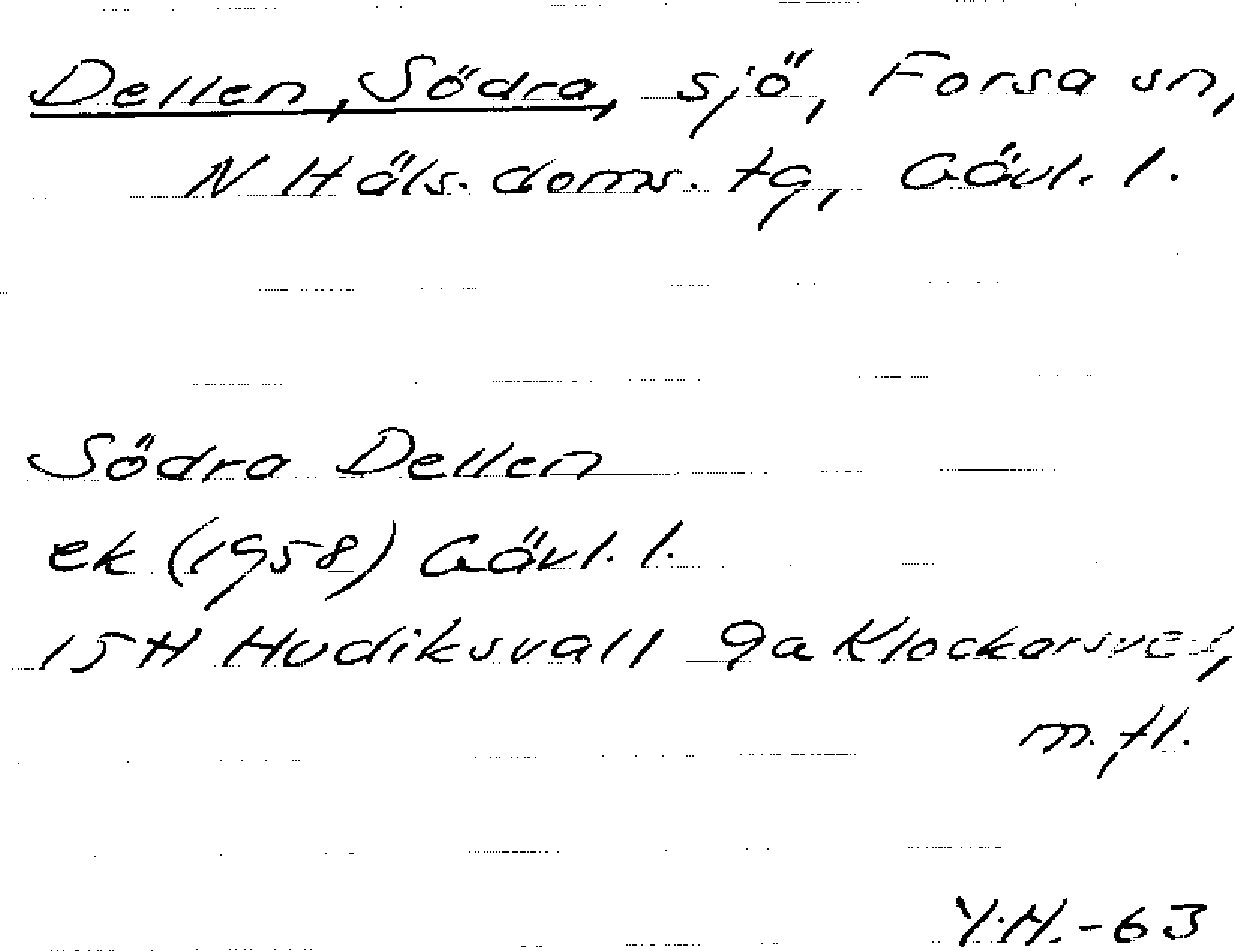 Dellen, Södra, sjö, Forsa sn,
N Häls. doms. tg, Gävl. l.
Södra Dellen
ek (1958) Gävl. l.
15H Hudiksvall 9a Klockarsved,
m.fl.
Y.H.-63